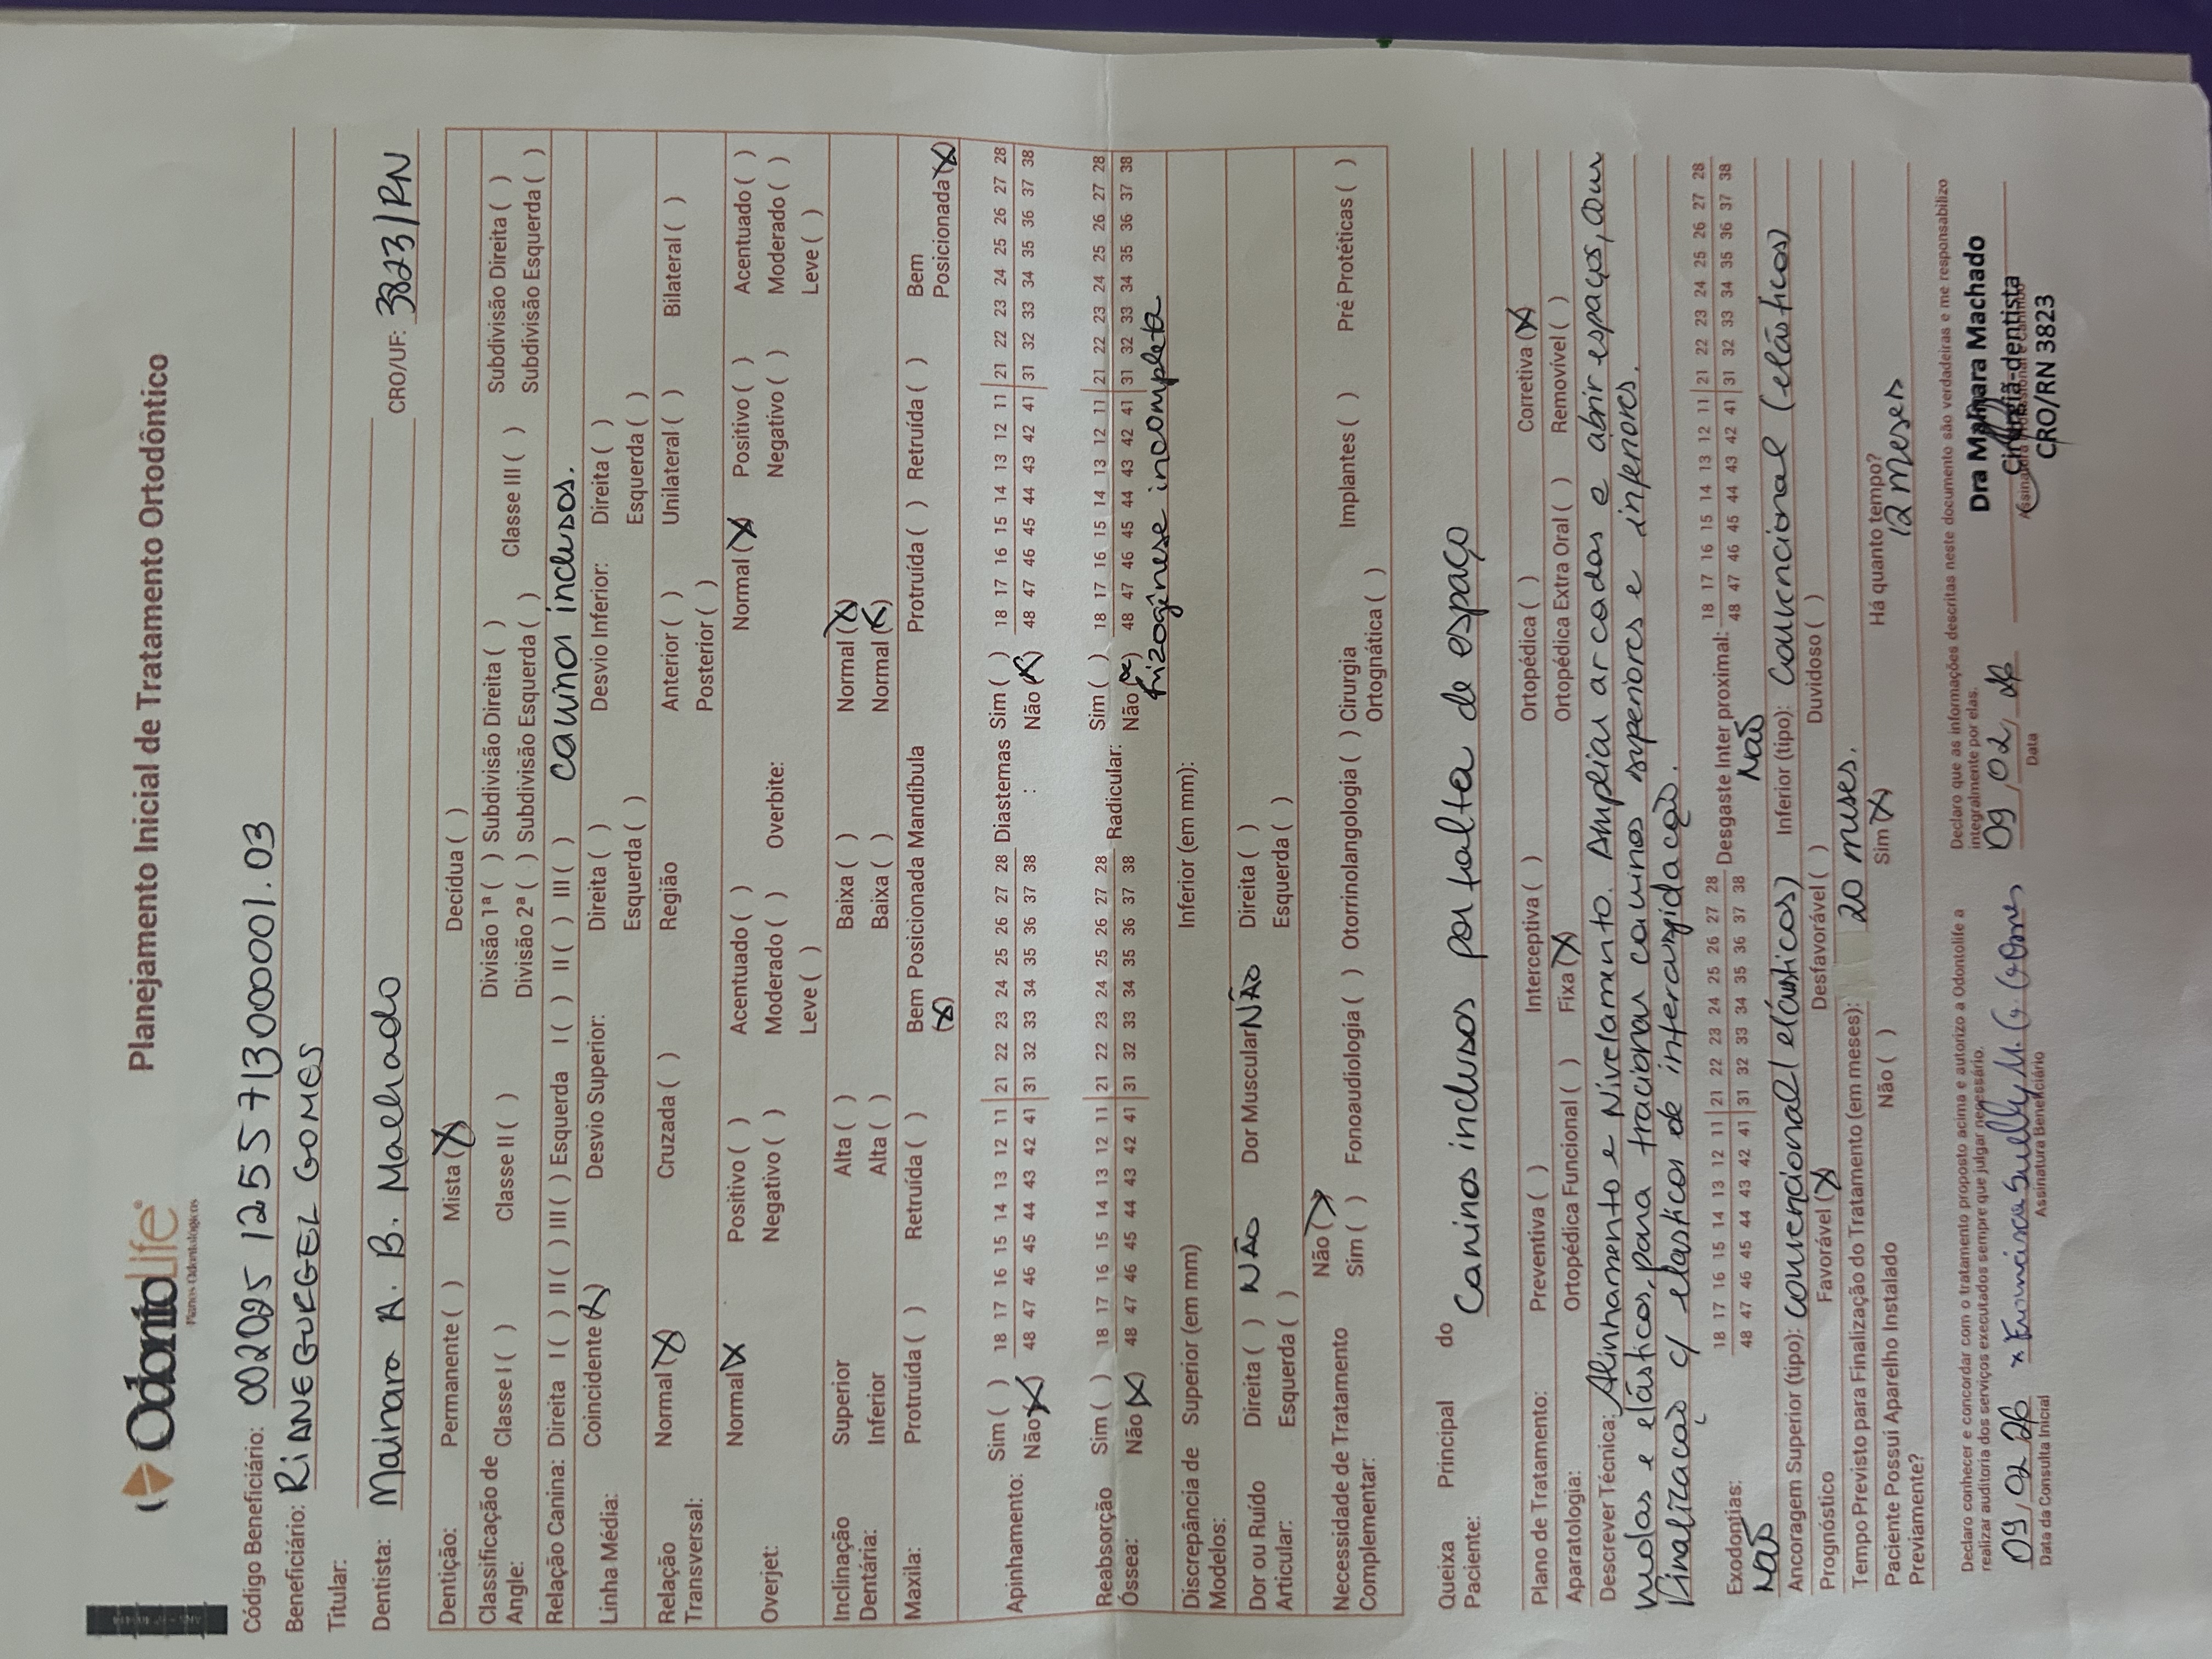 OdontoLife®
Planos Odontológicos
Planejamento Inicial de Tratamento Ortodôntico
Código Beneficiário: 002095 1255 713000001.03
Beneficiário: RIANE GURGEL GOMES
Titular:
Dentista: Mainara A. B. Machado CRO/UF: 3823/RN
Dentição: Permanente ( ) Mista (X) Decídua ( )
Classificação de Angle: Classe I ( ) Classe II ( ) Divisão 1ª ( ) Subdivisão Direita ( ) Classe III ( ) Subdivisão Direita ( )
Divisão 2ª ( ) Subdivisão Esquerda ( ) Subdivisão Esquerda ( )
Relação Canina: Direita I ( ) II ( ) III ( ) Esquerda I ( ) II ( ) III ( ) caninos inclusos.
Linha Média: Coincidente (X) Desvio Superior: Direita ( ) Desvio Inferior: Direita ( )
Esquerda ( ) Esquerda ( )
Relação Transversal: Normal (X) Cruzada ( ) Região Anterior ( ) Unilateral ( ) Bilateral ( )
Posterior ( )
Overjet: Normal (X) Positivo ( ) Acentuado ( ) Overbite: Normal (X) Positivo ( ) Acentuado ( )
Negativo ( ) Moderado ( ) Negativo ( ) Moderado ( )
Leve ( ) Leve ( )
Inclinação Dentária: Superior Alta ( ) Baixa ( ) Normal (X)
Inferior Alta ( ) Baixa ( ) Normal (X)
Maxila: Protruída ( ) Retruída ( ) Bem Posicionada (X) Mandíbula Protruída ( ) Retruída ( ) Bem Posicionada (X)
Apinhamento: Sim ( ) 18 17 16 15 14 13 12 11 | 21 22 23 24 25 26 27 28 Diastemas : Sim ( ) 18 17 16 15 14 13 12 11 | 21 22 23 24 25 26 27 28
Não (X) 48 47 46 45 44 43 42 41 | 31 32 33 34 35 36 37 38 Não (X) 48 47 46 45 44 43 42 41 | 31 32 33 34 35 36 37 38
Reabsorção Óssea: Sim ( ) 18 17 16 15 14 13 12 11 | 21 22 23 24 25 26 27 28 Radicular: Sim ( ) 18 17 16 15 14 13 12 11 | 21 22 23 24 25 26 27 28
Não (X) 48 47 46 45 44 43 42 41 | 31 32 33 34 35 36 37 38 Não (X) 48 47 46 45 44 43 42 41 | 31 32 33 34 35 36 37 38
rizogênese incompleta
Discrepância de Modelos: Superior (em mm) Inferior (em mm):
Dor ou Ruído Articular: Direita ( ) NÃO Dor Muscular NÃO Direita ( )
Esquerda ( ) Esquerda ( )
Necessidade de Tratamento Complementar: Não (X)
Sim ( ) Fonoaudiologia ( ) Otorrinolangologia ( ) Cirurgia Ortognática ( ) Implantes ( ) Pré Protéticas ( )
Queixa Principal do Paciente: Caninos inclusos por falta de espaço
Plano de Tratamento: Preventiva ( ) Interceptiva ( ) Ortopédica ( ) Corretiva (X)
Aparatologia: Ortopédica Funcional ( ) Fixa (X) Ortopédica Extra Oral ( ) Removível ( )
Descrever Técnica: Alinhamento e Nivelamento. Ampliar arcadas e abrir espaços, com
molas e elásticos, para tracionar caninos superiores e inferiores.
Finalização c/ elásticos de intercuspidação.
Exodontias: 18 17 16 15 14 13 12 11 | 21 22 23 24 25 26 27 28 Desgaste Inter proximal: 18 17 16 15 14 13 12 11 | 21 22 23 24 25 26 27 28
NÃO 48 47 46 45 44 43 42 41 | 31 32 33 34 35 36 37 38 NÃO 48 47 46 45 44 43 42 41 | 31 32 33 34 35 36 37 38
Ancoragem Superior (tipo): convencional (elásticos) Inferior (tipo): convencional (elásticos)
Prognóstico Favorável (X) Desfavorável ( ) Duvidoso ( )
Tempo Previsto para Finalização do Tratamento (em meses): 20 meses.
Paciente Possui Aparelho Instalado Previamente? Não ( ) Sim (X) Há quanto tempo? 12 meses
Declaro conhecer e concordar com o tratamento proposto acima e autorizo a Odontolife a
realizar auditoria dos serviços executados sempre que julgar necessário.
Declaro que as informações descritas neste documento são verdadeiras e me responsabilizo
integralmente por elas.
09/02/26 x Francisca Suelly M. G. Gomes 09/02/26
Data da Consulta Inicial Assinatura Beneficiário Data
Dra Mainara Machado
Cirurgiã-dentista
CRO/RN 3823